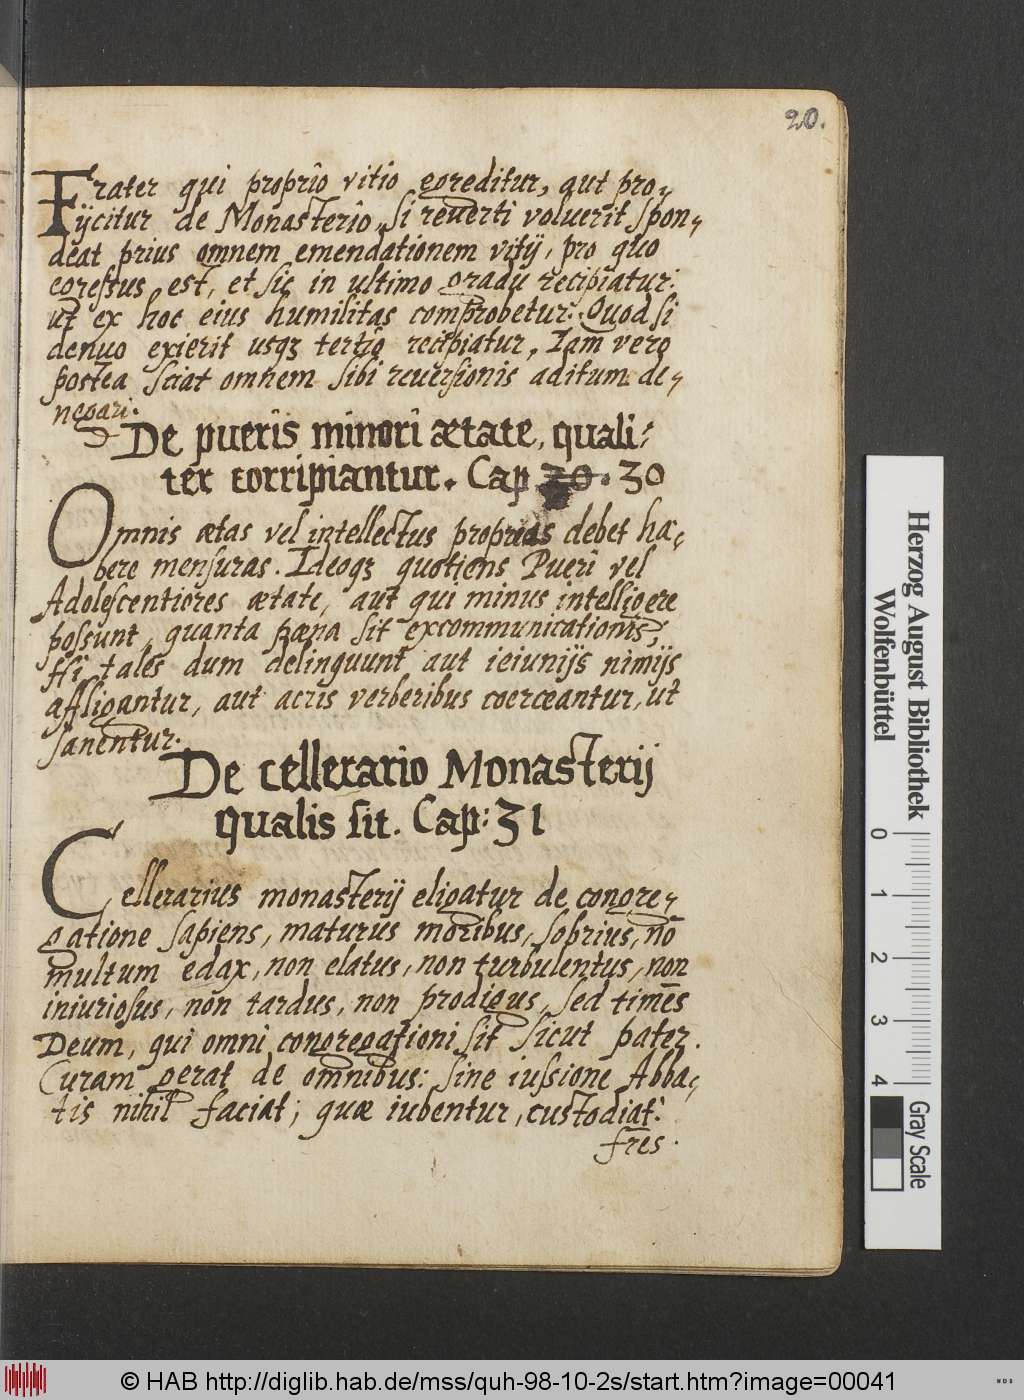 20.
Frater qui proprio vitio egreditur, aut pro,
ijcitur de Monasterio, si reuerti voluerit spon,
deat prius omnem emendationem vitij, pro quo
egressus est, et sic in ultimo gradu recipiatur:
ut ex hoc eius humilitas comprobetur. Quod si
denuo exierit usqꝫ tertio recipiatur, Iam vero
postea sciat omnem sibi reuersionis aditum de,
negari.
De pueris minori ætate, quali:
ter corripiantur. Cap 30
Omnis ætas vel intellectus proprias debet ha,
bere mensuras. Ideoqꝫ quotiens Pueri vel
Adolescentiores ætate, aut qui minus intelligere
possunt, quanta pæna sit excommunicationis;
Hi tales dum delinquunt aut ieiunijs nimijs
affligantur, aut acris verberibus coerceantur, ut
sanentur.
De cellerario Monasterij
qualis sit. Cap: 31
Cellerarius monasterij eligatur de congre,
gatione sapiens, maturus moribus, sobrius, nō
multum edax, non elatus, non turbulentus, non
iniuriosus, non tardus, non prodigus, sed timēs
Deum, qui omni congregationi sit sicut pater.
Curam gerat de omnibus: sine iussione Abba,
tis nihil faciat; quæ iubentur, custodiat:
fr̄es.
Herzog August Bibliothek
Wolfenbüttel
0 1 2 3 4
Gray Scale
© HAB http://diglib.hab.de/mss/quh-98-10-2s/start.htm?image=00041